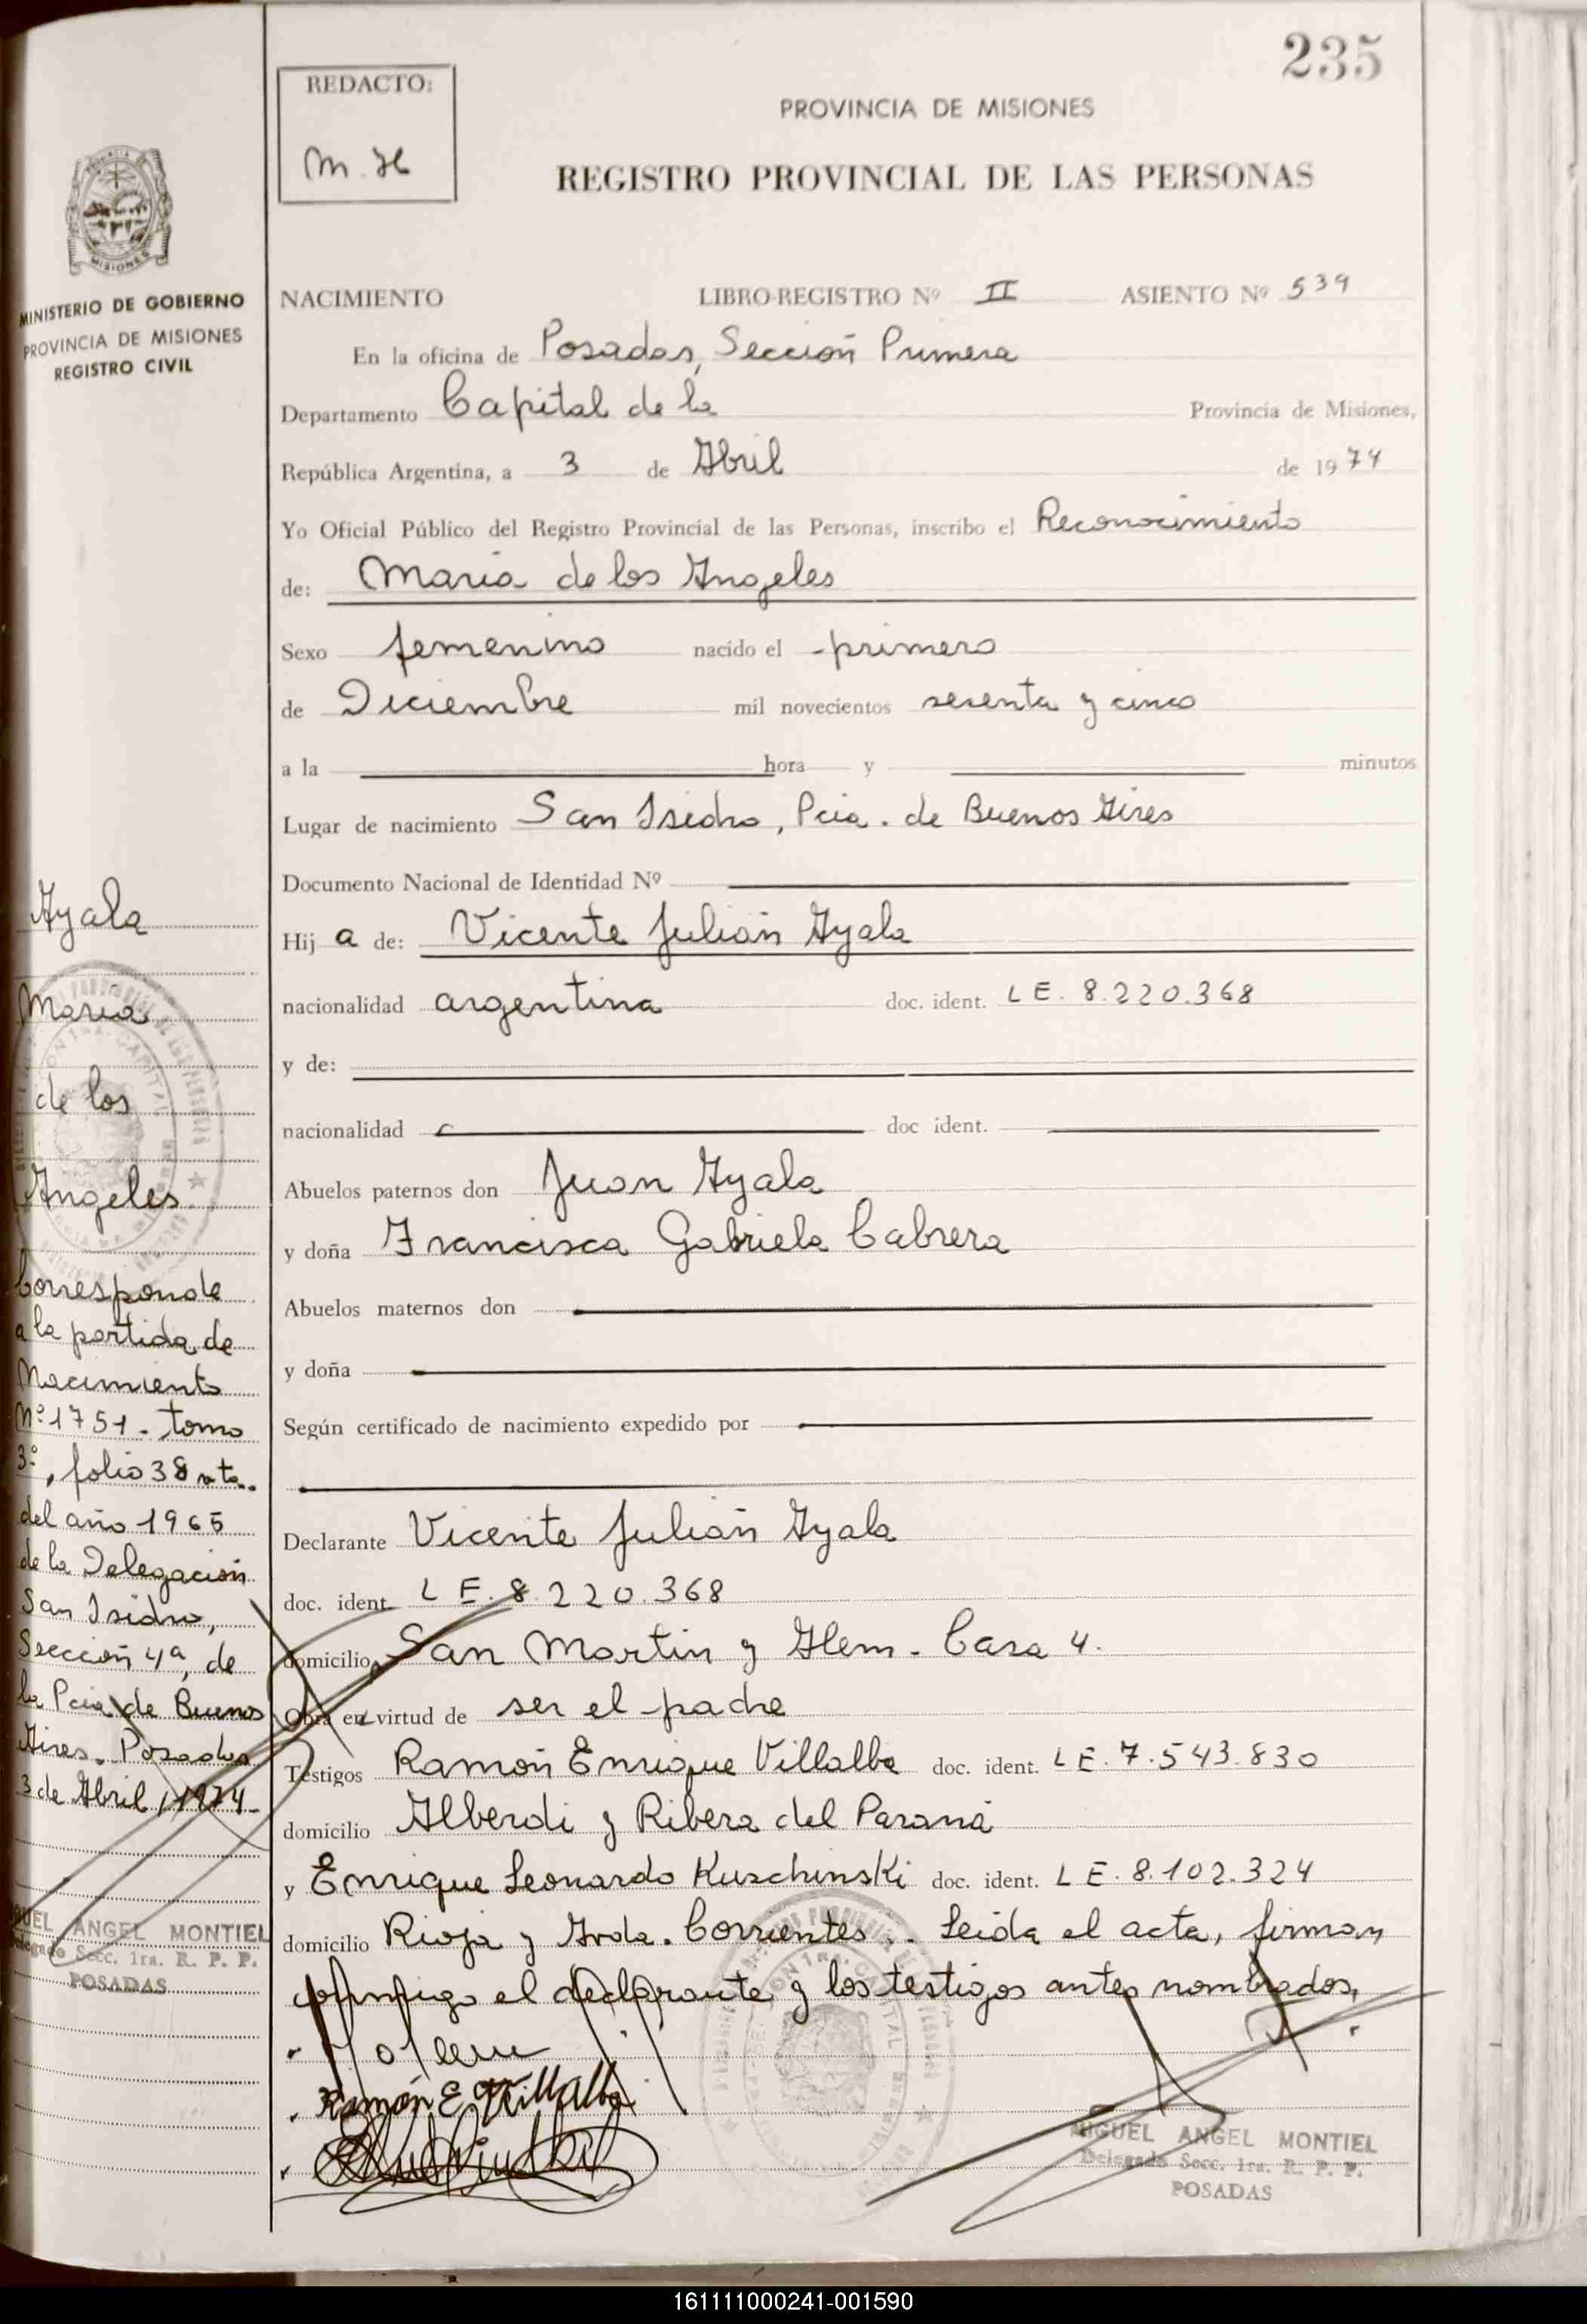 235
REDACTO:
M. H
PROVINCIA DE MISIONES
REGISTRO PROVINCIAL DE LAS PERSONAS
MISIONES
MINISTERIO DE GOBIERNO
PROVINCIA DE MISIONES
REGISTRO CIVIL
NACIMIENTO LIBRO-REGISTRO Nº II ASIENTO Nº 539
En la oficina de Posadas, Sección Primera
Departamento Capital de la Provincia de Misiones,
República Argentina, a 3 de Abril de 1974
Yo Oficial Público del Registro Provincial de las Personas, inscribo el Reconocimiento
de: María de los Angeles
Sexo femenino nacido el primero
de Diciembre mil novecientos sesenta y cinco
a la hora y minutos
Lugar de nacimiento San Isidro, Pcia. de Buenos Aires
Documento Nacional de Identidad Nº
Hij a de: Vicente Julián Ayala
nacionalidad argentina doc. ident. L E. 8.220.368
y de:
nacionalidad doc ident.
Abuelos paternos don Juan Ayala
y doña Francisca Gabriela Cabrera
Abuelos maternos don
y doña
Según certificado de nacimiento expedido por
Declarante Vicente Julián Ayala
doc. ident. L E. 8.220.368
domicilio San Martin y Alem. Casa 4.
Obra en virtud de ser el padre
Testigos Ramón Enrique Villalba doc. ident. L E. 7.543.830
domicilio Alberdi y Ribera del Paraná
y Enrique Leonardo Kuschinski doc. ident. L E. 8.102.324
domicilio Rioja y Avda. Corrientes.. Leída el acta, firman
conmigo el declarante y los testigos antes nombrados,
Ramón E Villalba
MIGUEL ANGEL MONTIEL
Delegado Secc. 1ra. R. P. P.
POSADAS
Ayala
María
de los
Angeles
Corresponde
a la partida de
Nacimiento
Nº 1751. tomo
3º, folio 38 vta.
del año 1965
de la Delegación
San Isidro,
Sección 4ª, de
la Pcia de Buenos
Aires. Posadas
3 de Abril, 1974.
MIGUEL ANGEL MONTIEL
Delegado Secc. 1ra. R. P. P.
POSADAS
161111000241-001590